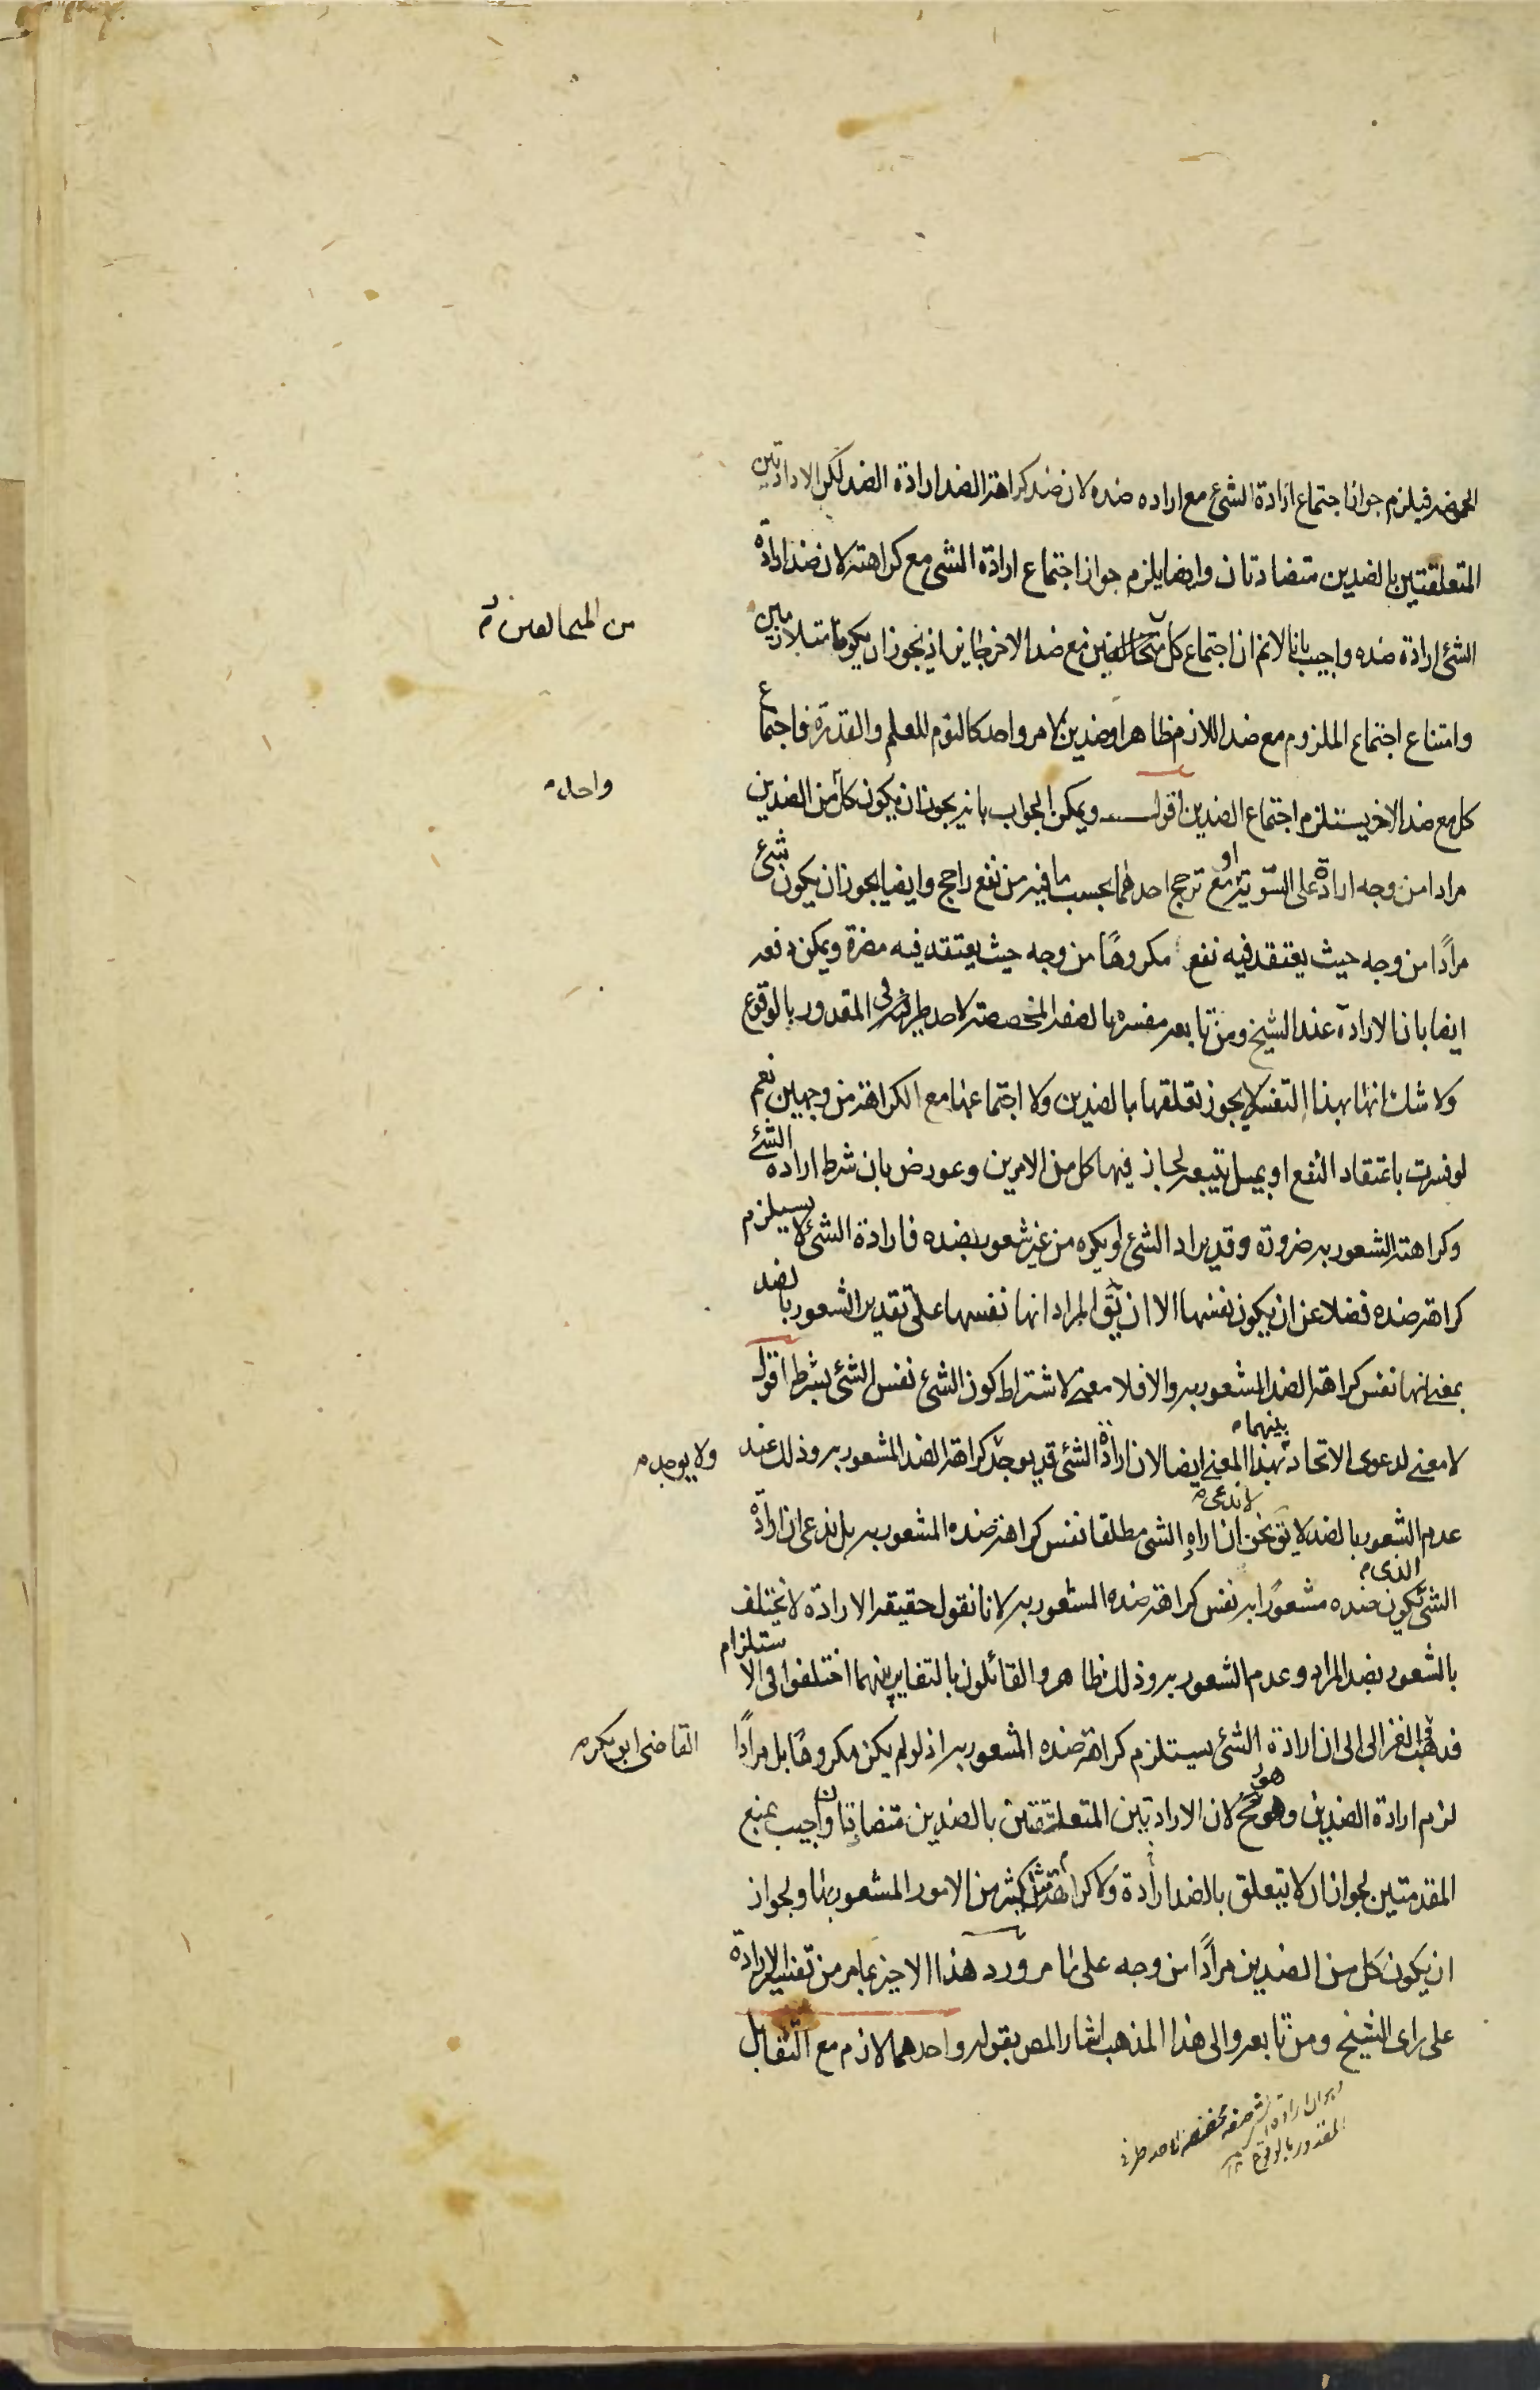 الحموضة فيلزم جواز اجتماع ارادة الشئ مع اراده ضده لان ضد كراهة الضد ارادة الضد لكن الارادتين
المتعلقتين بالضدين متضادتان وايضا يلزم جواز اجتماع ارادة الشئ مع كراهته لان ضد ارادة
الشئ ارادة ضده واجيب بانا لانم ان اجتماع كل من المتخالفين مع ضد الاخر جايز اذ يجوز ان يكونا متلازمين
من المتخالفين
وامتناع اجتماع الملزوم مع ضد اللازم ظاهر او ضدين لامر واحد كالنوم للعلم والقدرة فاجتماع
كل مع ضد الاخر يستلزم اجتماع الضدين اقول ويمكن الجواب بانه يجوز ان يكون كل من الضدين
واحد
مرادا من وجه ارادة على السوية او مع ترجح احدهما بحسب ما فيه من نفع راجح وايضا يجوز ان يكون شئ
مرادًا من وجه حيث يعتقد فيه نفع مكروهًا من وجه حيث يعتقد فيه مضرة ويمكن دفعه
ايضا بان الارادة عند الشيخ ومن تابعه مفسرة بالصفة المخصصة لاحد طرفى المقدور بالوقوع
ولا شك انها بهذا التفسير لا يجوز تعلقها بالضدين ولا اجتماعها مع الكراهة من وجهين نعم
لو فسرت باعتقاد النفع او بميل يتبعه لجاز فيها كل من الامرين وعورض بان شرط ارادة الشئ
وكراهته الشعور به ضرورة وقد يراد الشئ او يكره من غير شعور بضده فارادة الشئ لا يستلزم
كراهة ضده فضلا عن ان يكون نفسها الا ان يق المراد انها نفسها على تقدير الشعور بالضد
بمعنى انها نفس كراهة الضد المشعور به والا فلا معنى لاشتراط كون الشئ نفس الشئ بشرط اقول
لا معنى لدعوى الاتحاد بينهما بهذا المعنى ايضا لان ارادة الشئ قد يوجد كراهة الضد المشعور به وذلك عند
ولا يوجد
عدم الشعور بالضد لا يق نحن لا ندعى ان اراده الشئ مطلقا نفس كراهة ضده المشعور به بل ندعى ان ارادة
الشئ الذى يكون ضده مشعورًا به نفس كراهة ضده المشعور به لانا نقول حقيقة الارادة لا يختلف
بالشعور بضد المراد وعدم الشعور به وذلك ظاهر والقائلون بالتغاير بينهما اختلفوا فى الاستلزام
فذهب الغزالى الى ان ارادة الشئ يستلزم كراهة ضده المشعور به اذ لو لم يكن مكروهًا بل مرادًا
القاضى ابو بكر
لزم ارادة الضدين وهو مح لان الارادتين المتعلقتين بالضدين متضادتان واجيب بمنع
المقدمتين لجواز ان لا يتعلق بالضد ارادة ولا كراهة مثل كثير من الامور المشعور بها ولجواز
ان يكون كل من الضدين مرادًا من وجه على ما مر ورد هذا الاخير بما مر من تفسير الارادة
على راى الشيخ ومن تابعه والى هذا المذهب اشار المص بقوله واحدهما لازم مع التقابل
ان ارادة صفة مخصصة لاحد طرفى
المقدور بالوقوع